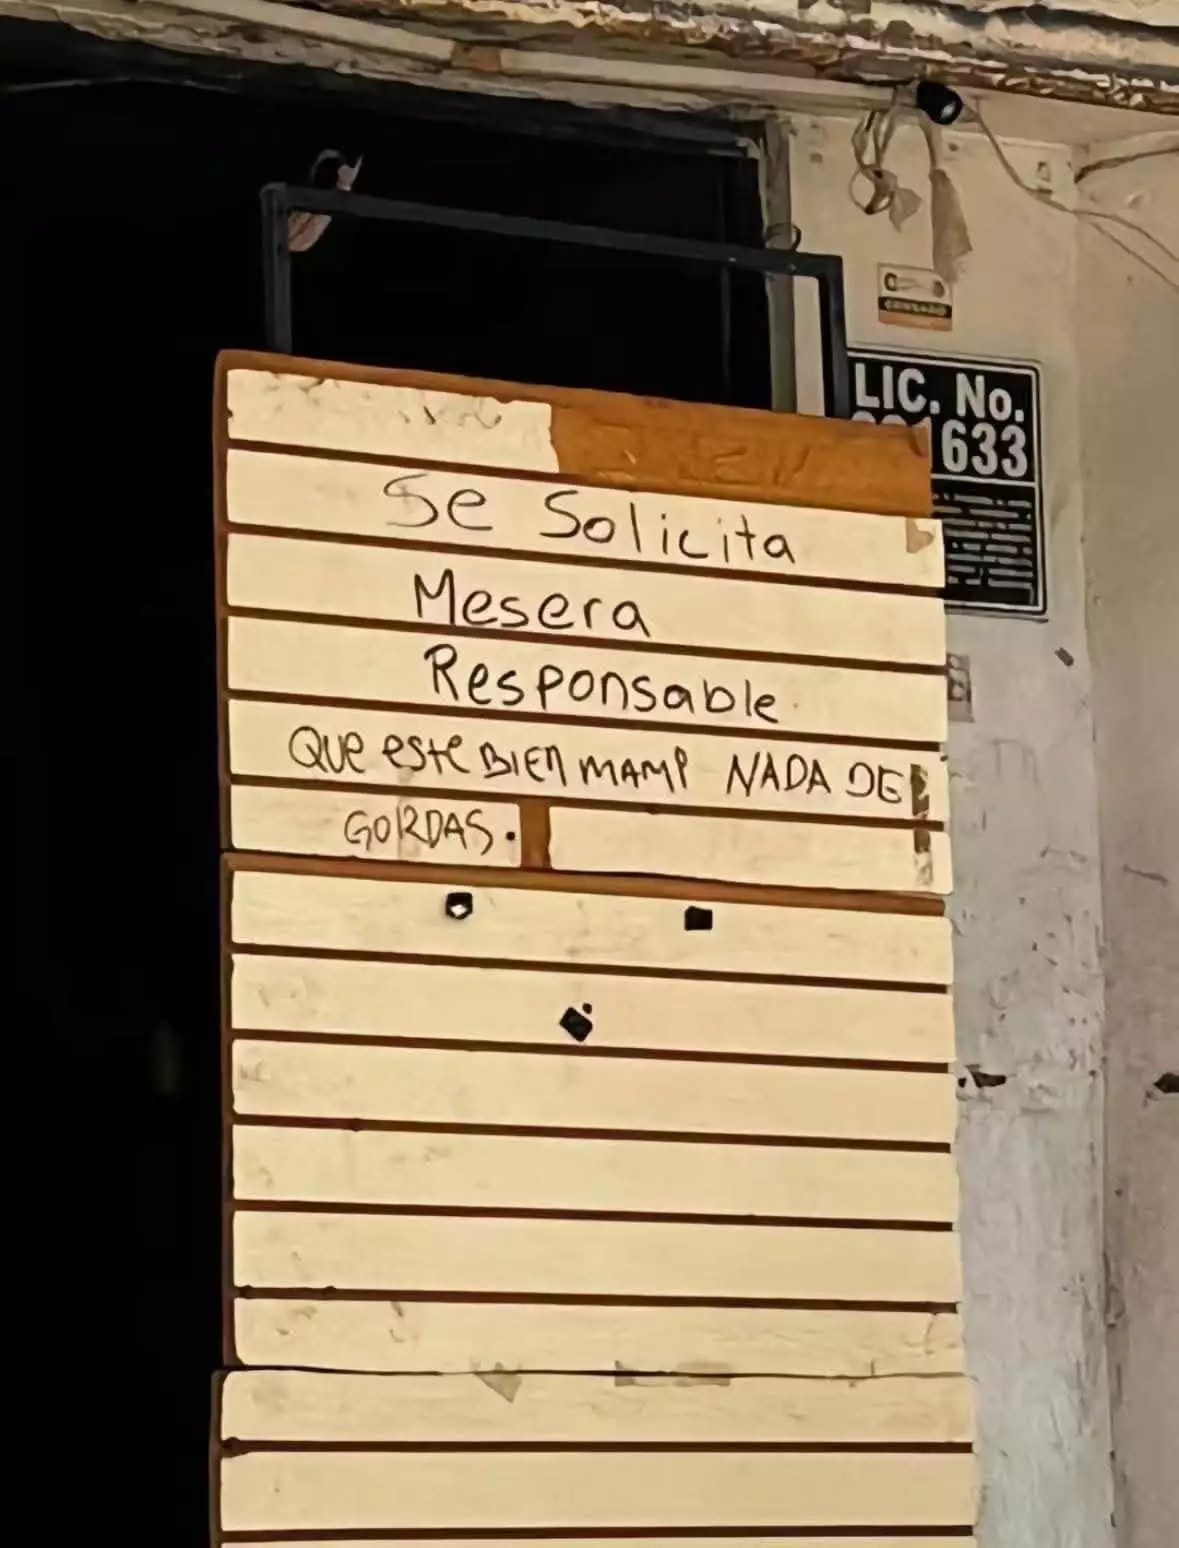 Se Solicita
Mesera
Responsable.
QUE esTe BIEn MAMI NADA DE
GORDAS.
LIC. No.
1633